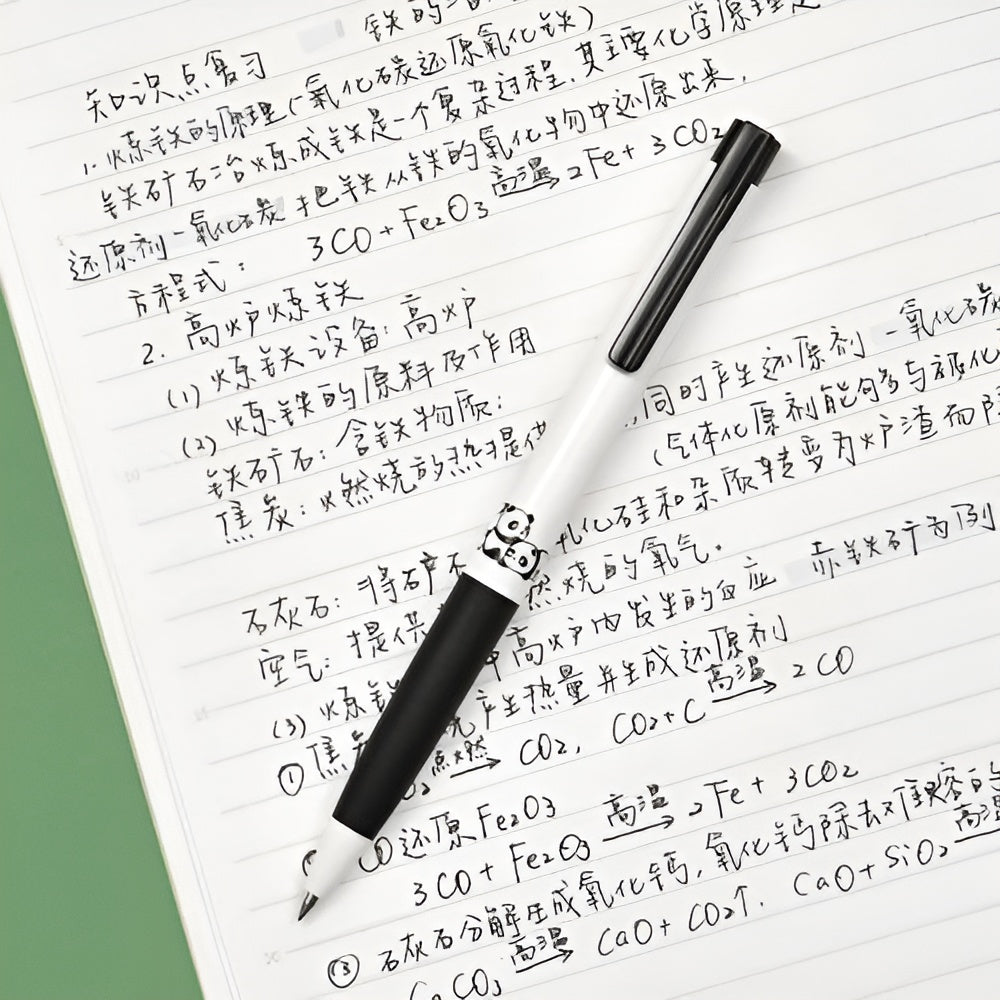 铁的
知识点复习
1. 炼铁的原理(一氧化碳还原氧化铁)
铁矿石冶炼成铁是一个复杂过程,其主要化学原理是
还原剂一氧化碳把铁从铁的氧化物中还原出来,
方程式: 3CO+Fe₂O₃ 高温→ 2Fe+3CO₂
2. 高炉炼铁
(1) 炼铁设备:高炉
(2) 炼铁的原料及作用
铁矿石:含铁物质;
焦炭:燃烧放热提供,同时产生还原剂一氧化碳
(气体化原剂能够与
石灰石:将矿石化硅和杂质转变为炉渣而
空气:提供燃烧的氧气.
(3) 炼铁高炉内发生的反应 赤铁矿为例
① 焦炭产生热量并生成还原剂
O₂ 点燃→ CO₂, CO₂+C 高温→ 2CO
CO还原Fe₂O₃
3CO+Fe₂O₃ 高温→ 2Fe+3CO₂
③ 石灰石分解生成氧化钙,氧化钙除去难熔的
CaCO₃ 高温→ CaO+CO₂↑. CaO+SiO₂ 高温